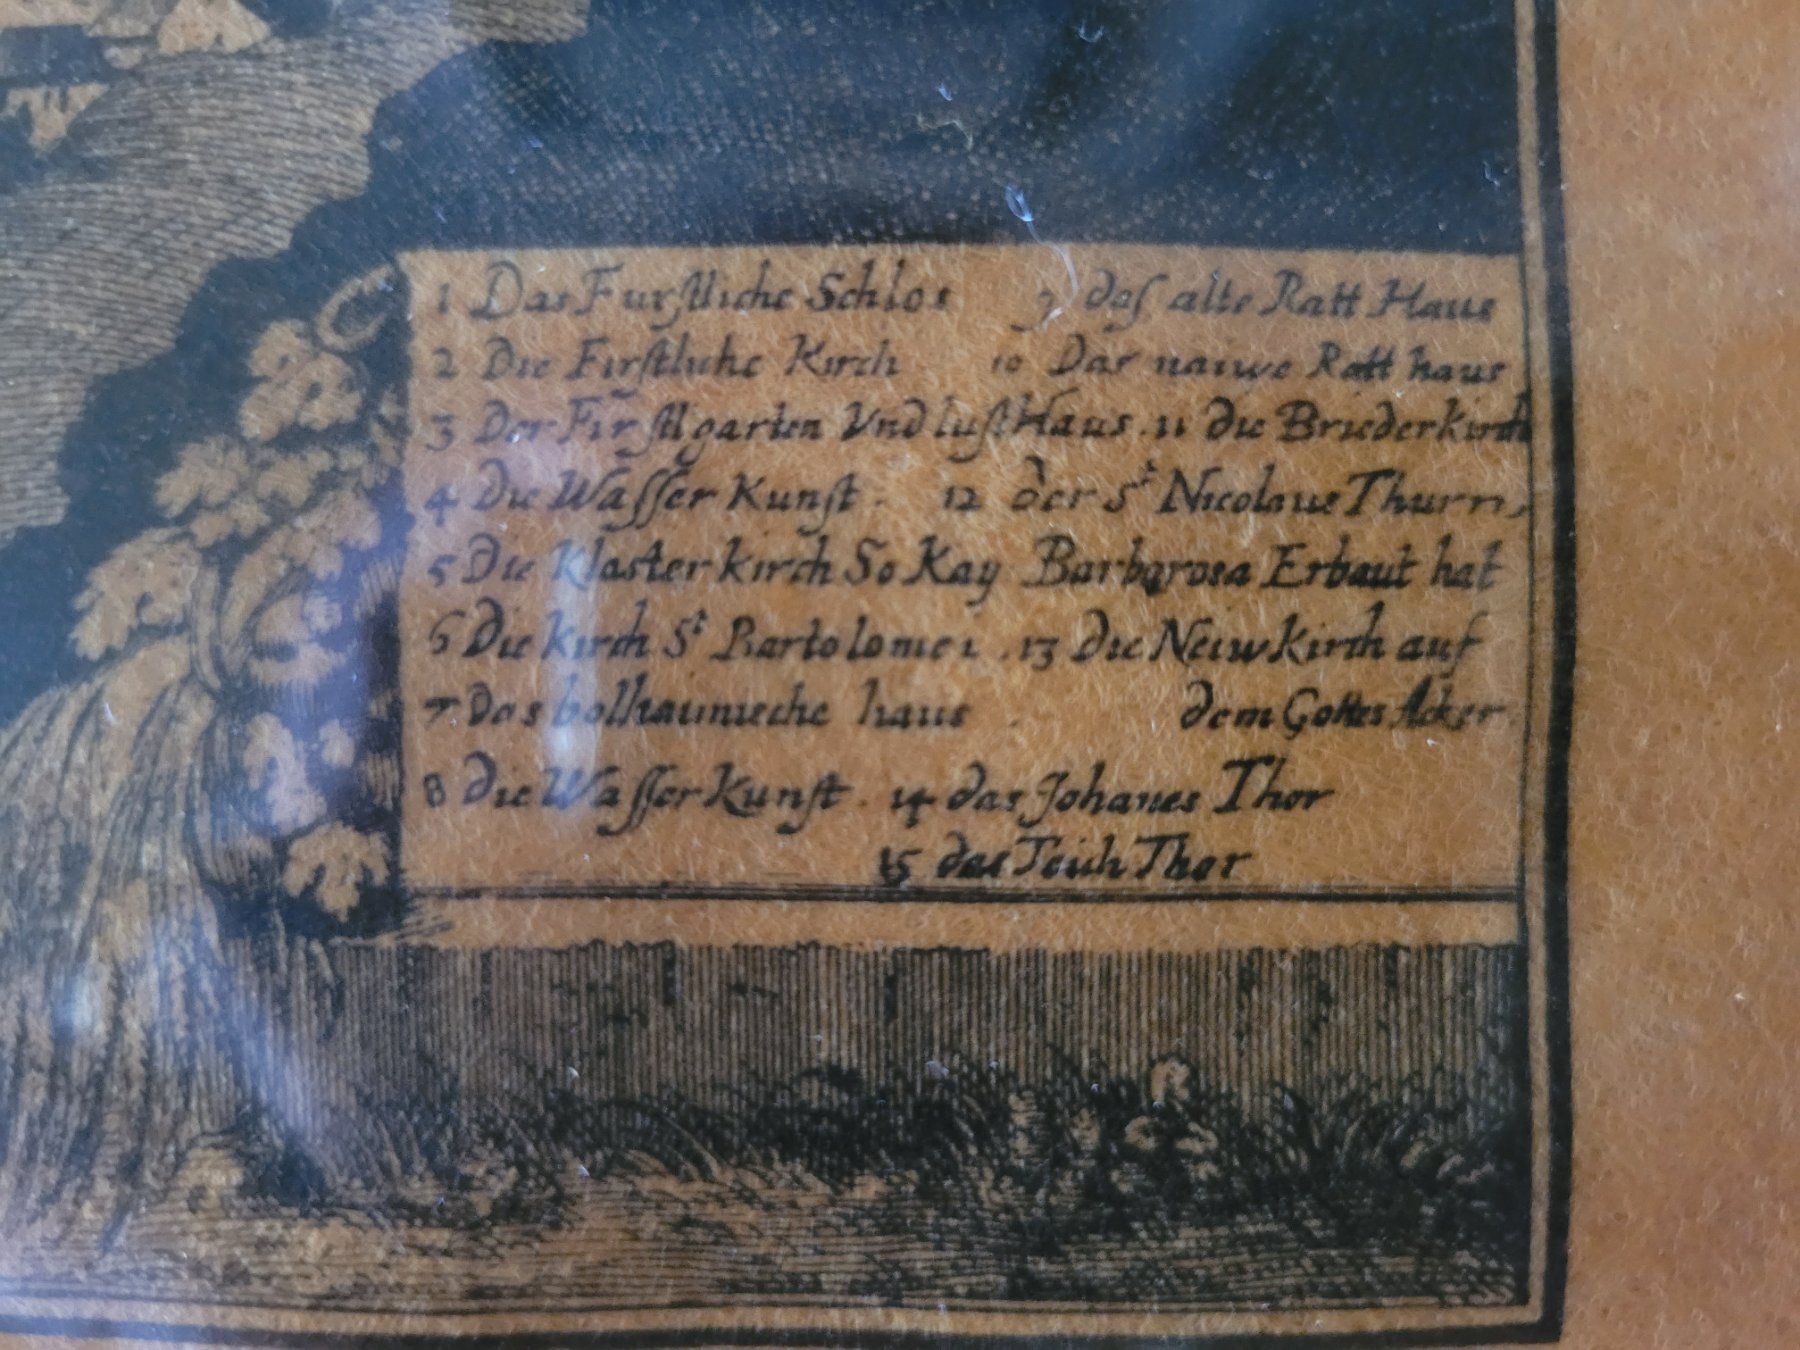 1 Das Furstliche Schlos 9 das alte Ratt Haus
2 Die Firstliche Kirch 10 Das naiwe Ratt haus
3 Der Firstlgarten Vnd lust Haus . 11 die Briederkirch
4 die Wasser Kunst . 12 der St Nicolaus Thurn,
5 Die Klosterkirch So Kay Barbarosa Erbaut hat
6 Die kirch St Bartolomei . 13 die Neiwkirch auf
7 Das haus . dem Gottes Acker
8 die Wasser Kunst . 14 das Johanes Thor
15 das Teich Thor